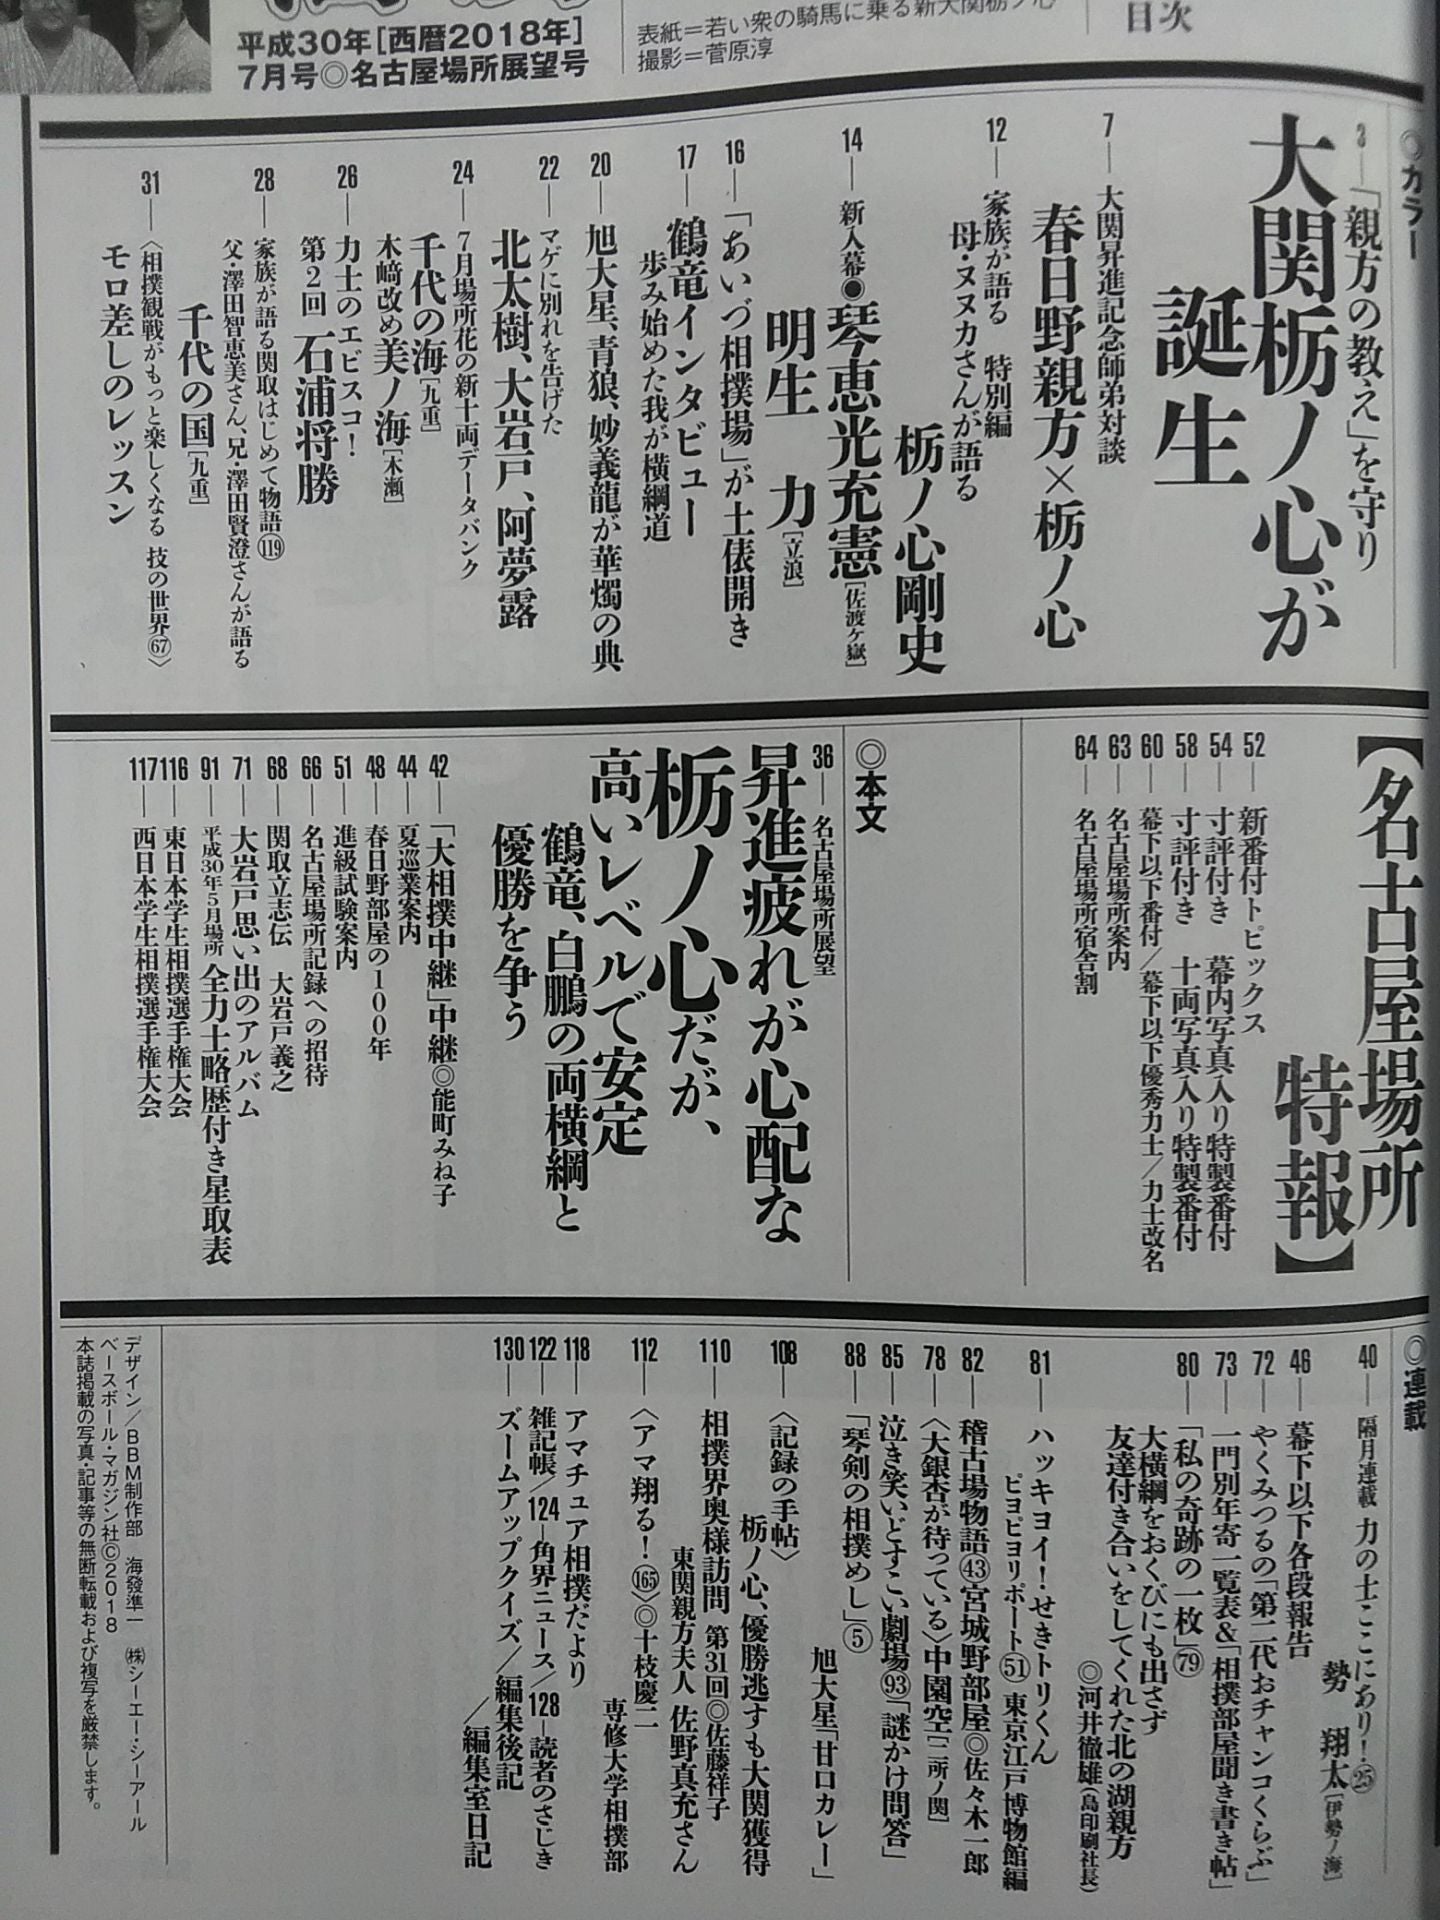 平成30年[西暦2018年]
7月号◎名古屋場所展望号
表紙＝若い衆の騎馬に乗る新大関栃ノ心
撮影＝菅原淳
目次
◎カラー
3―「親方の教え」を守り
大関栃ノ心が
誕生
7―大関昇進記念師弟対談
春日野親方×栃ノ心
12―家族が語る 特別編
母・ヌヌカさんが語る
栃ノ心剛史
14―新入幕●琴恵光充憲[佐渡ケ嶽]
明生 力[立浪]
16―「あいづ相撲場」が土俵開き
17―鶴竜インタビュー
歩み始めた我が横綱道
20―旭大星、青狼、妙義龍が華燭の典
22―マゲに別れを告げた
北太樹、大岩戸、阿夢露
24―7月場所花の新十両データバンク
千代の海[九重]
木﨑改め美ノ海[木瀬]
26―力士のエビスコ！
第2回 石浦将勝
28―家族が語る関取はじめて物語⑲
父・澤田智恵美さん、兄・澤田賢澄さんが語る
千代の国[九重]
31―〈相撲観戦がもっと楽しくなる 技の世界67〉
モロ差しのレッスン
【名古屋場所
特報】
52―新番付トピックス
54―寸評付き 幕内写真入り特製番付
58―寸評付き 十両写真入り特製番付
60―幕下以下番付／幕下以下優秀力士／力士改名
63―名古屋場所案内
64―名古屋場所宿舎割
◎本文
36―名古屋場所展望
昇進疲れが心配な
栃ノ心だが、
高いレベルで安定
鶴竜、白鵬の両横綱と
優勝を争う
42―「大相撲中継」中継◎能町みね子
44―夏巡業案内
48―春日野部屋の100年
51―進級試験案内
66―名古屋場所記録への招待
68―関取立志伝 大岩戸義之
71―大岩戸思い出のアルバム
91―平成30年5月場所 全力士略歴付き星取表
116―東日本学生相撲選手権大会
117―西日本学生相撲選手権大会
◎連載
40―隔月連載 力の士ここにあり！㉕
勢 翔太[伊勢ノ海]
46―幕下以下各段報告
72―やくみつるの「第二代おチャンコくらぶ」
73―一門別年寄一覧表＆「相撲部屋聞き書き帖」
80―「私の奇跡の一枚」79
大横綱をおくびにも出さず
友達付き合いをしてくれた北の湖親方
◎河井徹雄(島印刷社長)
81―ハッキヨイ！せきトリくん
ピヨピヨリポート51 東京江戸博物館編
82―稽古場物語㊸宮城野部屋◎佐々木一郎
78―〈大銀杏が待っている〉中園空[二所ノ関]
85―泣き笑いどすこい劇場93「謎かけ問答」
88―「琴剣の相撲めし」⑤
旭大星「甘口カレー」
108―〈記録の手帖〉
栃ノ心、優勝逃すも大関獲得
110―相撲界奥様訪問 第31回◎佐藤祥子
東関親方夫人 佐野真充さん
112―〈アマ翔る！165〉◎十枝慶二
専修大学相撲部
118―アマチュア相撲だより
122―雑記帳／124―角界ニュース／128―読者のさじき
130―ズームアップクイズ／編集後記
／編集室日記
デザイン／BBM制作部 海發準一 ㈱シーエー・シーアール
ベースボール・マガジン社©2018
本誌掲載の写真・記事等の無断転載および複写を厳禁します。